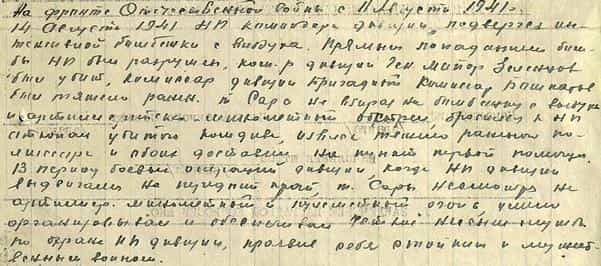 На фронте Отечественной войны с 11 Августа 1941 г.
14 Августа 1941 НП командера дивизии, подвергся ин-
тенсивной бомбежки с воздуха. Прямым попаданием бом-
бы НП был разрушен, ком-р дивизии Ген. Майор Зеленцов
был убит, комиссар дивизии Бригадный Комиссар
был тяжело ранен. т. Сара не взирая на бомбежку с воздуха
и артиллерийско минометный обстрел бросился к НП
убитого комдива, извлек тяжело раненого ко-
миссара и обоих доставил на пункт первой помощи.
В период боевых операций дивизии, когда НП дивизии
выдвигался на передний край, т. Сара, несмотря на
артиллер. минометный и пулеметный огонь умело
организовывал и обеспечивал несение службы
по охране НП дивизии, проявив себя стойким и мужест-
венным воином.